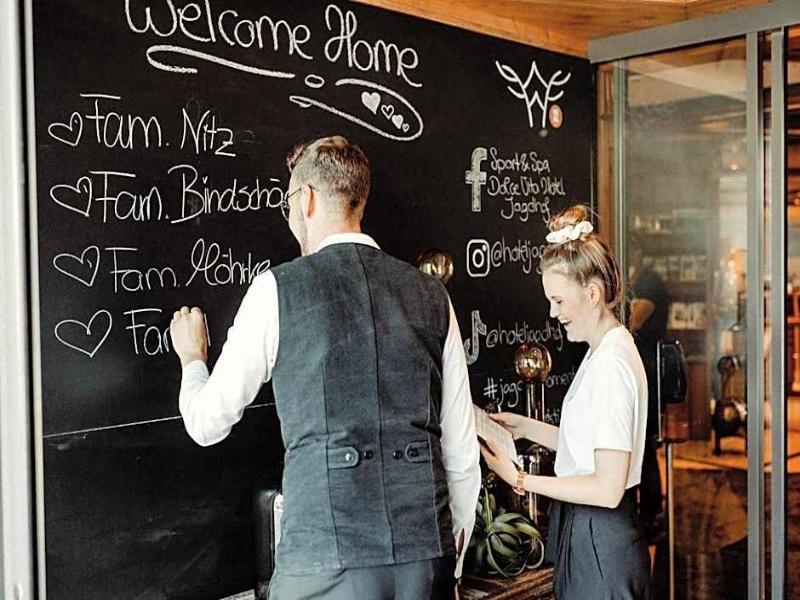 Welcome Home
Fam. Nitz
Fam.
Fam. Möhrke
Fam
Sport & Spa
Dolce Vita Hotel
Jagdhof
@hoteljag
@hoteljagdhof
#jagd